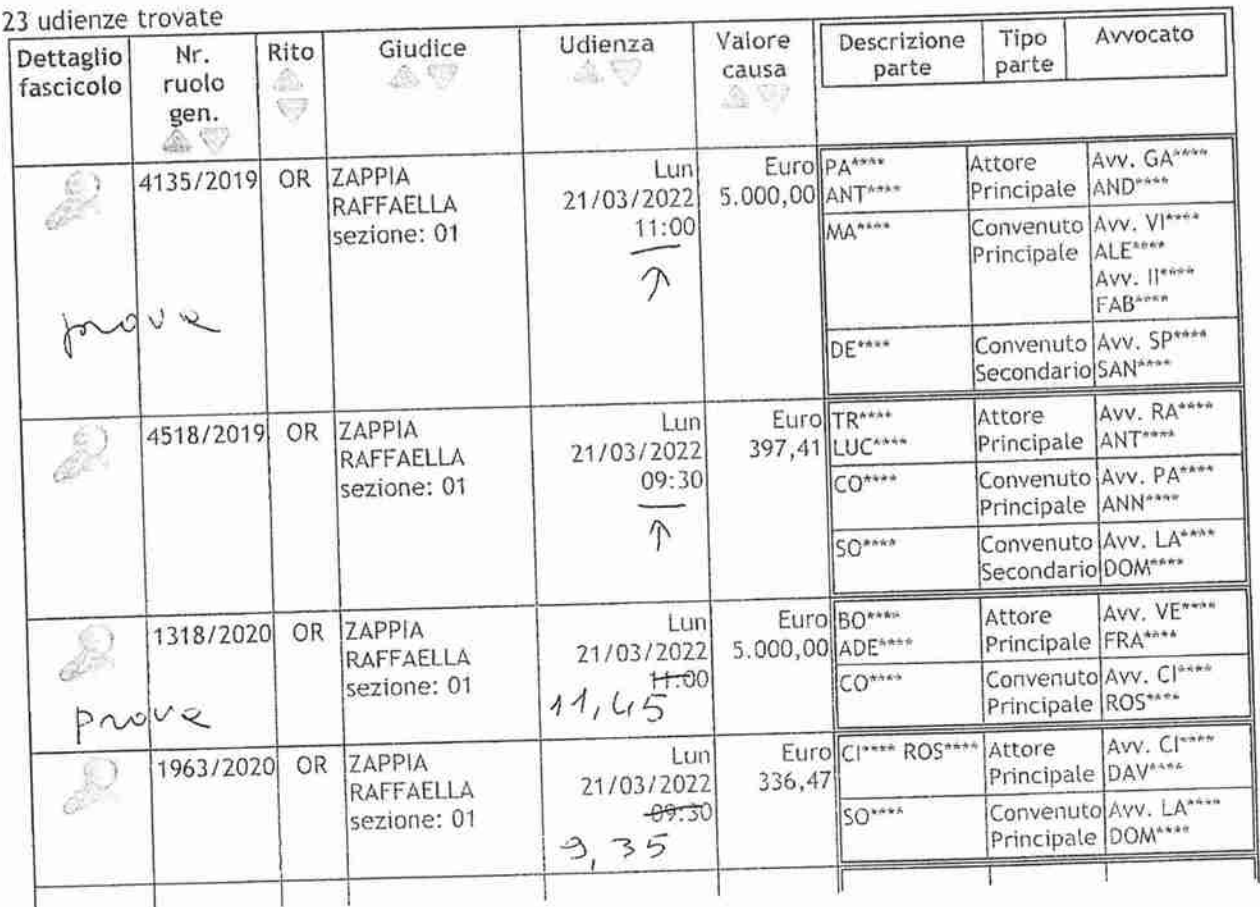 23 udienze trovate
Dettaglio fascicolo
Nr. ruolo gen.
Rito
Giudice
Udienza
Valore causa
Descrizione parte
Tipo parte
Avvocato
4135/2019
OR
ZAPPIA
RAFFAELLA
sezione: 01
Lun
21/03/2022
11:00
Euro
5.000,00
PA****
ANT****
Attore
Principale
Avv. GA****
AND****
MA****
Convenuto
Principale
Avv. VI****
ALE****
Avv. II****
FAB****
DE****
Convenuto
Secondario
Avv. SP****
SAN****
prova
4518/2019
OR
ZAPPIA
RAFFAELLA
sezione: 01
Lun
21/03/2022
09:30
Euro
397,41
TR****
LUC****
Attore
Principale
Avv. RA****
ANT****
CO****
Convenuto
Principale
Avv. PA****
ANN****
SO****
Convenuto
Secondario
Avv. LA****
DOM****
1318/2020
OR
ZAPPIA
RAFFAELLA
sezione: 01
Lun
21/03/2022
11:00
11,45
Euro
5.000,00
BO****
ADE****
Attore
Principale
Avv. VE****
FRA****
CO****
Convenuto
Principale
Avv. CI****
ROS****
prove
1963/2020
OR
ZAPPIA
RAFFAELLA
sezione: 01
Lun
21/03/2022
09:30
9,35
Euro
336,47
CI**** ROS****
Attore
Principale
Avv. CI****
DAV****
SO****
Convenuto
Principale
Avv. LA****
DOM****